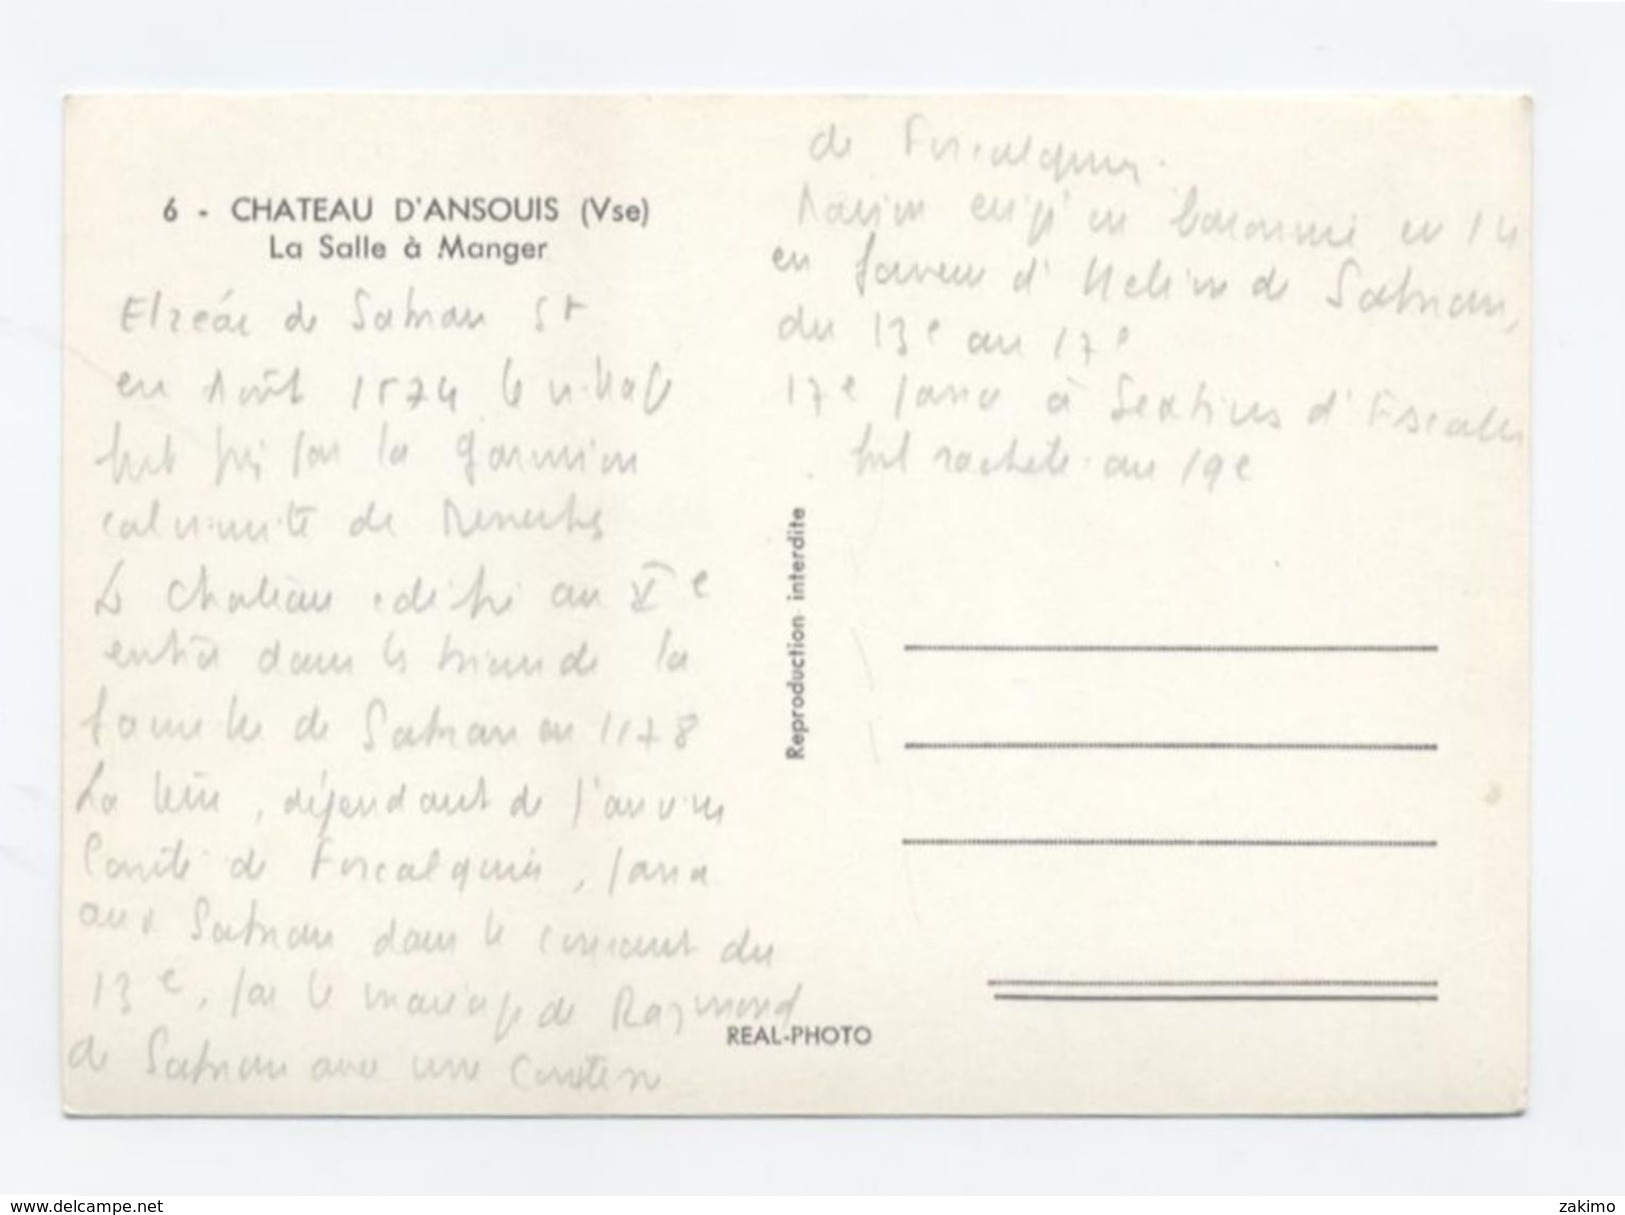 6 - CHATEAU D'ANSOUIS (Vse)
La Salle à Manger
Elzéar de Sabran St
en Août 1574 le village
fut pris par la garnison
calviniste de Menerbes
Le chateau édifié au Xe
entra dans le de la
famille de Sabran en 1178
La terre, dépendant de l'ancien
Comté de Forcalquier, passa
aux Sabran dans le courant du
13e, par le mariage de Raymond
de Sabran avec une Comtesse
de Forcalquier.
érigé en baronnie en 14
en faveur d' de Sabran,
du 13e au 17e
17e passa à Sextius d'Escalis
fut racheté au 19e
Reproduction interdite
REAL-PHOTO
www.delcampe.net
zakimo